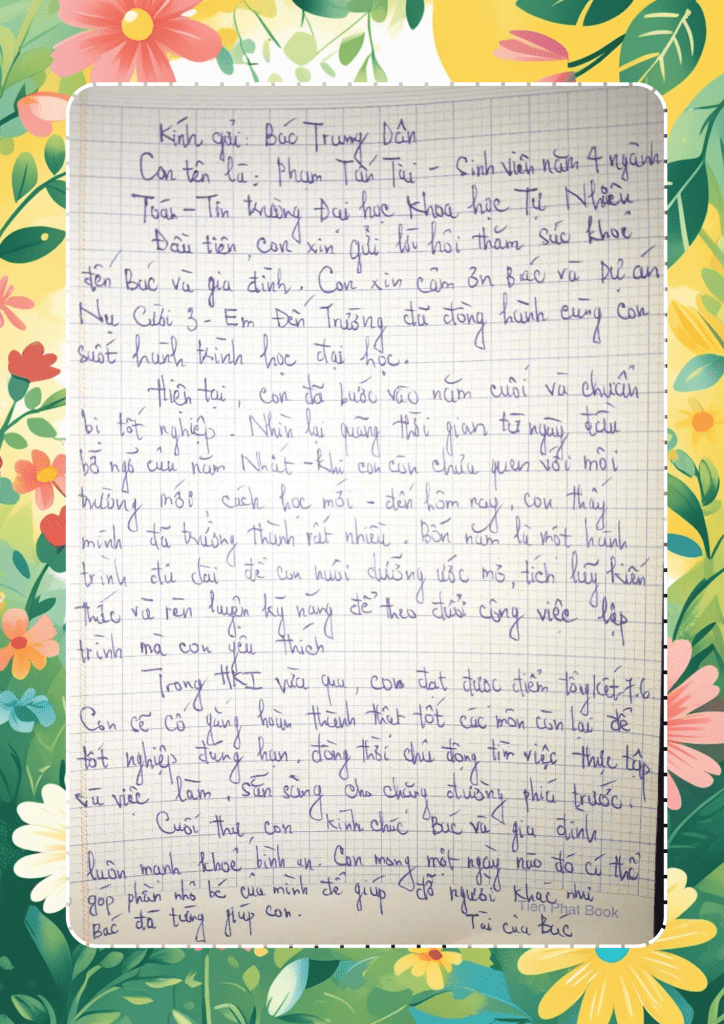 Kính gửi: Bác Trung Dân
Con tên là: Phạm Tấn Tài - Sinh viên năm 4 ngành
Toán - Tin trường Đại học Khoa học Tự Nhiên
Đầu tiên, con xin gửi lời hỏi thăm sức khoẻ
đến Bác và gia đình. Con xin cảm ơn Bác và Dự án
Nụ Cười 3 - Em Đến Trường đã đồng hành cùng con
suốt hành trình học đại học.
Hiện tại, con đã bước vào năm cuối và chuẩn
bị tốt nghiệp. Nhìn lại quãng thời gian từ ngày đầu
bỡ ngỡ của năm Nhất - khi con còn chưa quen với môi
trường mới, cách học mới - đến hôm nay, con thấy
mình đã trưởng thành rất nhiều. Bốn năm là một hành
trình đủ dài để con nuôi dưỡng ước mơ, tích lũy kiến
thức và rèn luyện kỹ năng để theo đuổi công việc lập
trình mà con yêu thích
Trong HKI vừa qua, con đạt được điểm tổng kết 7.6.
Con sẽ cố gắng hoàn thành thật tốt các môn còn lại để
tốt nghiệp đúng hạn, đồng thời chủ động tìm việc thực tập
và việc làm, sẵn sàng cho chặng đường phía trước.
Cuối thư con kính chúc Bác và gia đình
luôn mạnh khoẻ bình an. Con mong một ngày nào đó có thể
góp phần nhỏ bé của mình để giúp đỡ người khác như
Bác đã từng giúp con.
Tài của bác
Tien Phat Book